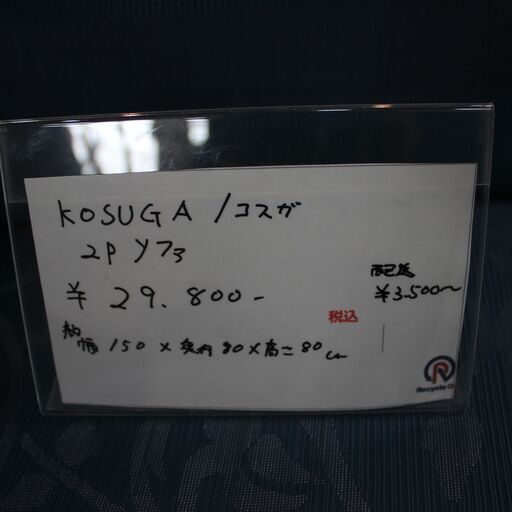 KOSUGA / コスガ
2P ソファ
¥ 29.800-
税込
配送
¥3.500〜
幅 150 × 奥行 80 × 高さ 80 cm
R
Recycle